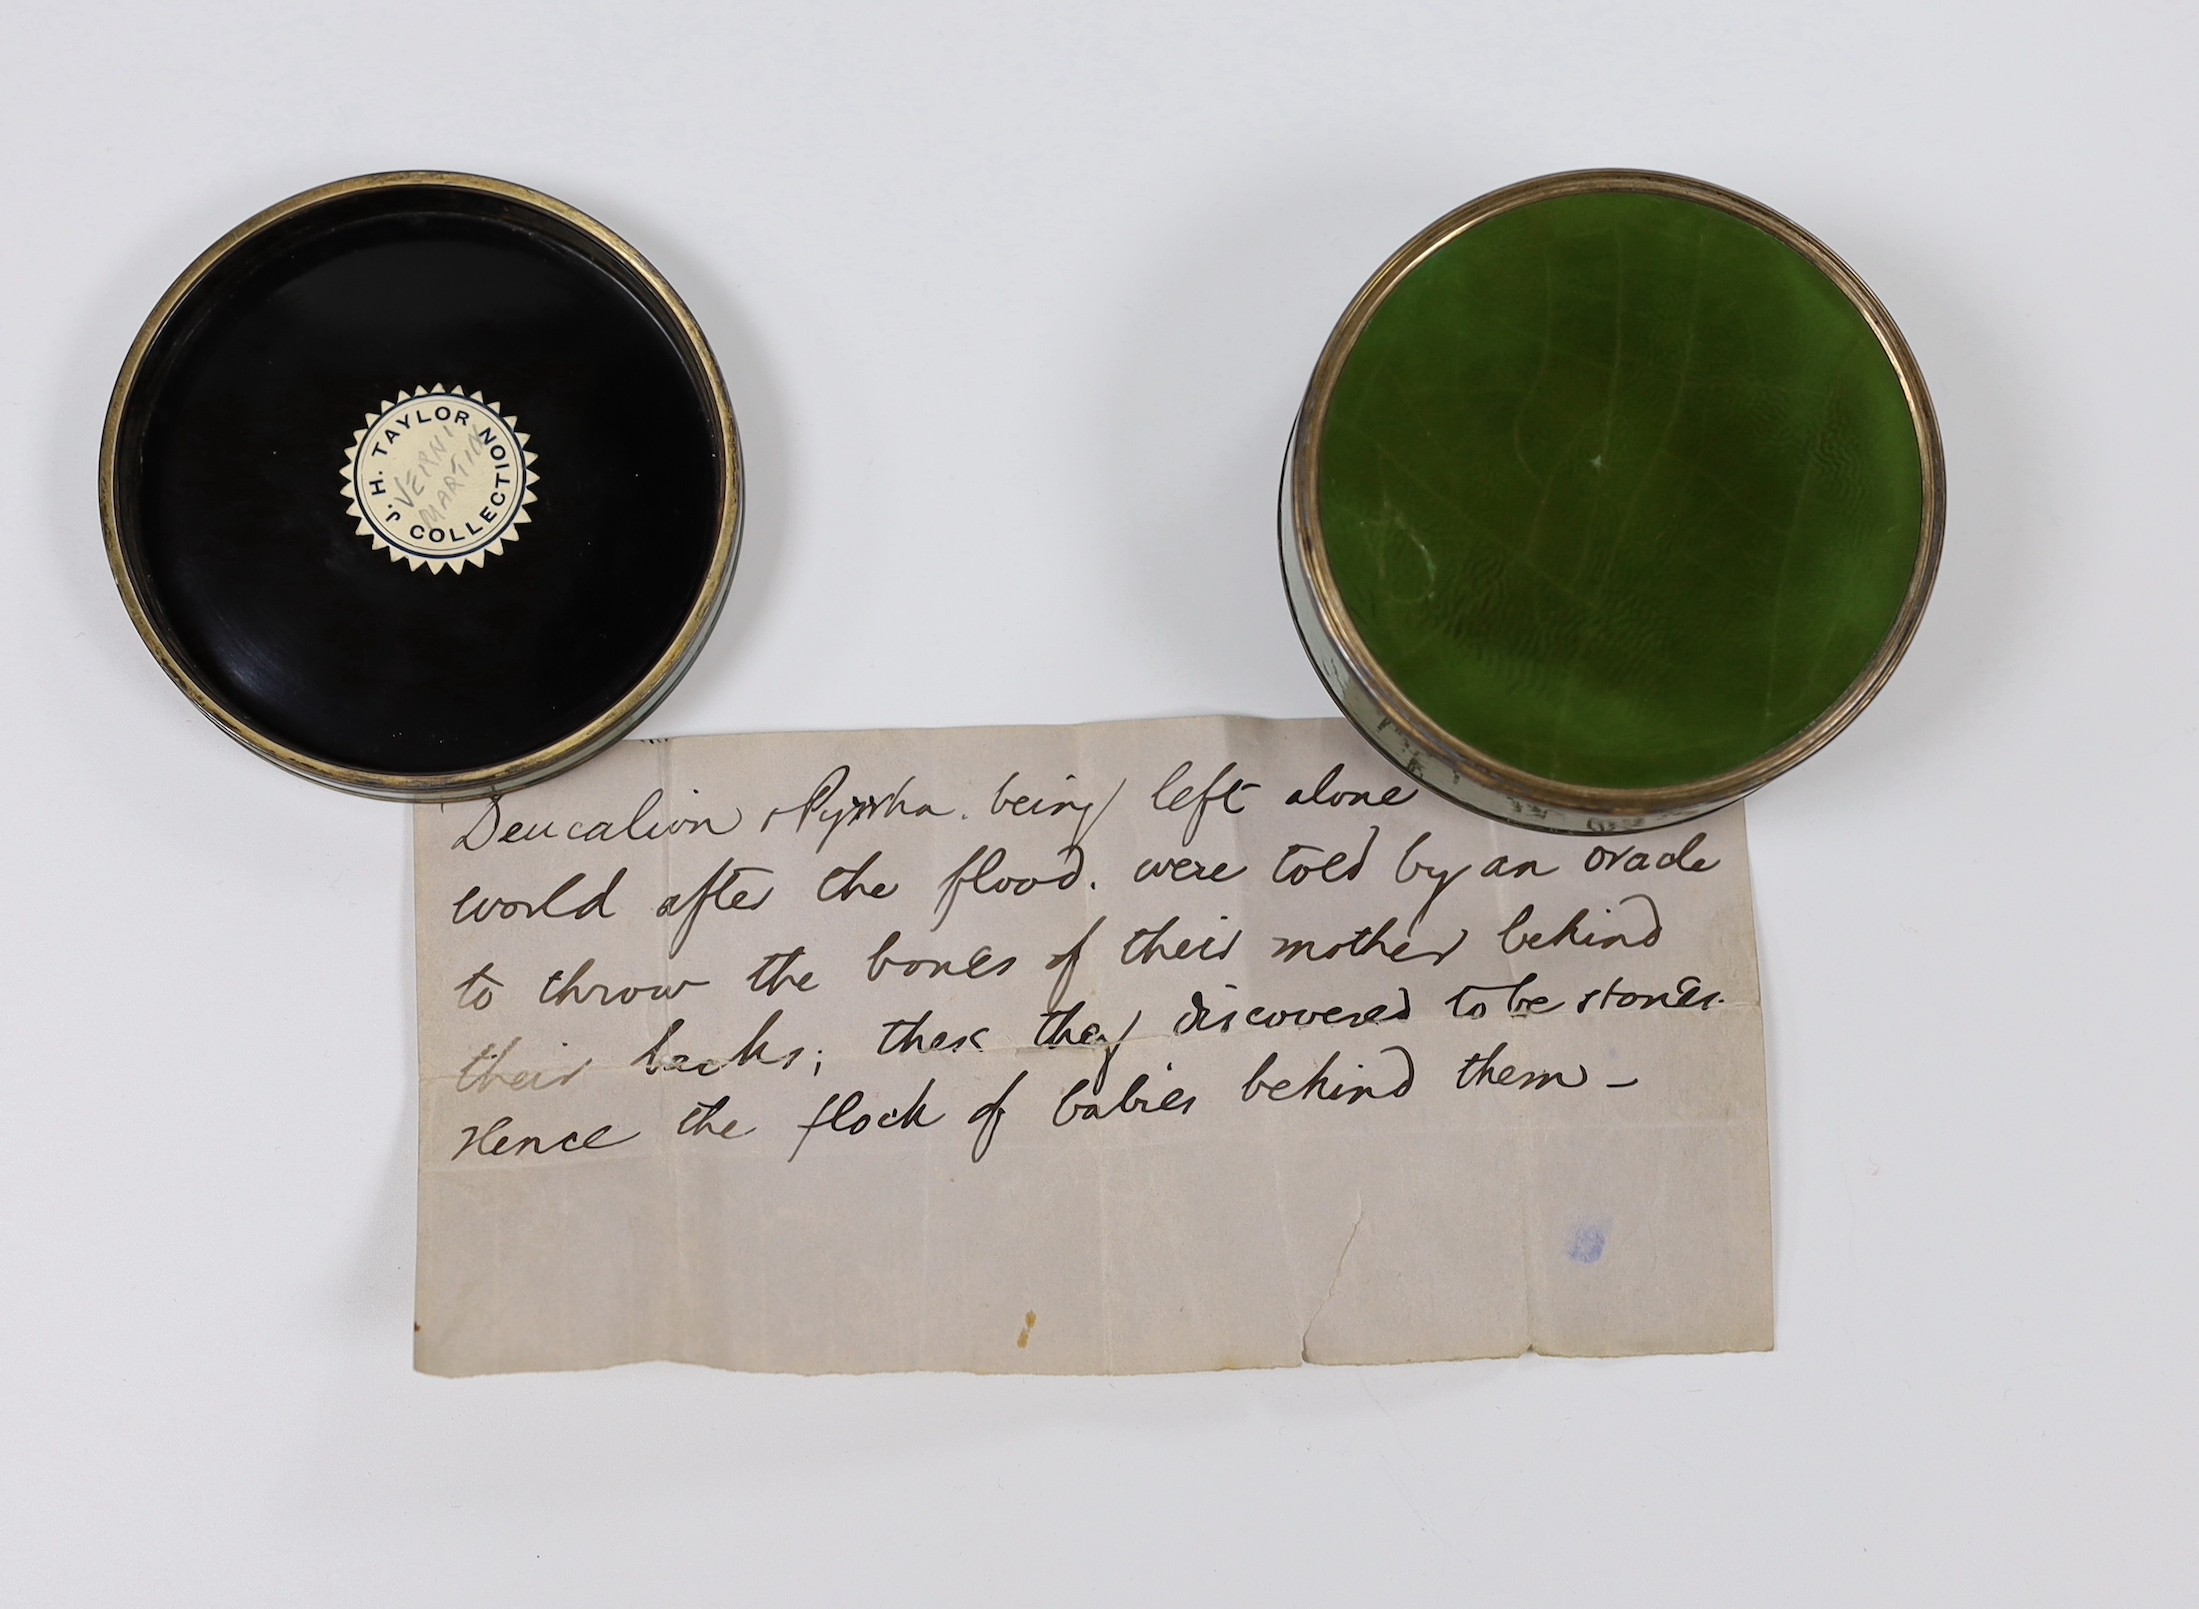 J. H. TAYLOR COLLECTION
VERNI
MARTIN
Deucalion & Pyrrha. being left alone
world after the flood. were told by an oracle
to throw the bones of their mother behind
their backs; these they discovered to be stones.
Hence the flock of babies behind them –